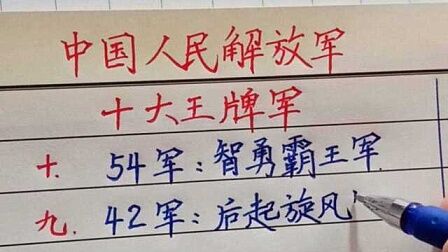 中国人民解放军
十大王牌军
十. 54军：智勇霸王军.
九. 42军：后起旋风